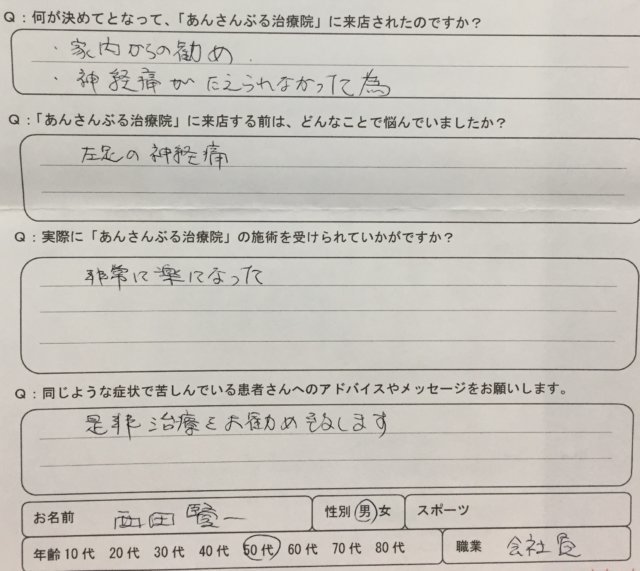 Q：何が決めてとなって、「あんさんぶる治療院」に来店されたのですか？
・家内からの勧め
・神経痛がたえられなかった為
Q：「あんさんぶる治療院」に来店する前は、どんなことで悩んでいましたか？
左足の神経痛
Q：実際に「あんさんぶる治療院」の施術を受けられていかがですか？
非常に楽になった
Q：同じような症状で苦しんでいる患者さんへのアドバイスやメッセージをお願いします。
是非治療をお勧め致します
お名前 西田賢一 性別 男 女 スポーツ
年齢 10代 20代 30代 40代 50代 60代 70代 80代 職業 会社員